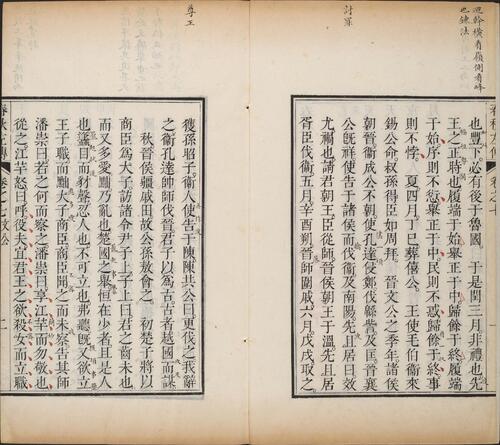 也鍊法
討罪
也豐下必有後于魯國　于是閏三月非禮也先
王之正時也履端于始舉正于中歸餘于終履端
于始序則不愆舉正于中民則不惑歸餘于終事
則不悖　夏四月丁巳葬僖公　王使毛伯衛來
錫公命叔孫得臣如周拜　晉文公之季年諸侯
朝晉衛成公不朝使孔達侵鄭伐緜訾及匡晉襄
公既祥使告于諸侯而伐衛及南陽先且居曰效
尤禍也請君朝王臣從師晉侯朝王于溫先且居
胥臣伐衛五月辛酉朔晉師圍戚六月戊戌取之
尊王
獲孫昭子衛人使告于陳陳共公曰更伐之我辭
之衛孔達帥師伐晉君子以為古古者越國而謀
秋晉侯疆戚田故公孫敖會之　初楚子將以
商臣為大子訪諸令尹子上子上曰君之齒未也
而又多愛黜乃亂也楚國之舉恒在少者且是人
也蠭目而豺聲忍人也不可立也弗聽既又欲立
王子職而黜大子商臣商臣聞之而未察告其師
潘崇曰若之何而察之潘崇曰享江羋而勿敬也
從之江羋怒曰呼役夫宜君王之欲殺女而立職
春秋左傳　卷之七文公　二